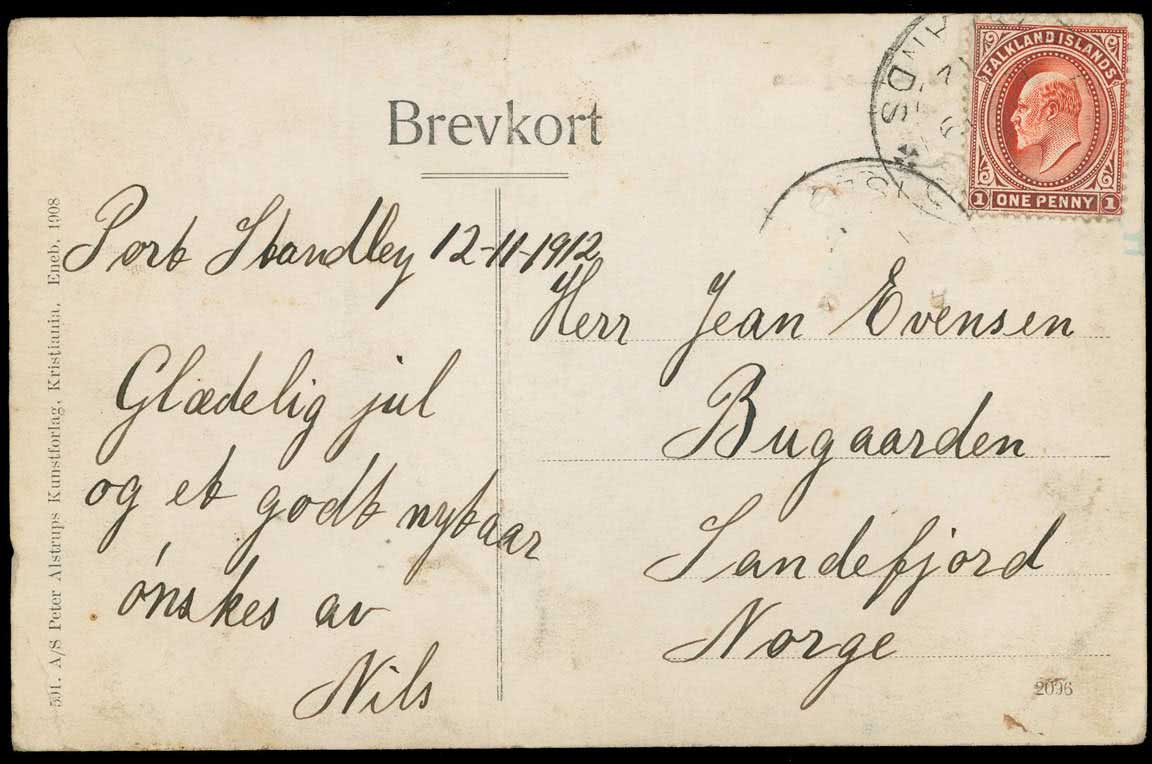 Brevkort
FALKLAND ISLANDS
1 ONE PENNY 1
NDS
Port Standley 12-11-1912
Glædelig jul
og et godt nytaar
ønskes av
Nils
Herr Jean Evensen
Bugaarden
Sandefjord
Norge
2096
591. A/S Peter Alstrups Kunstforlag, Kristiania. Eneb. 1908